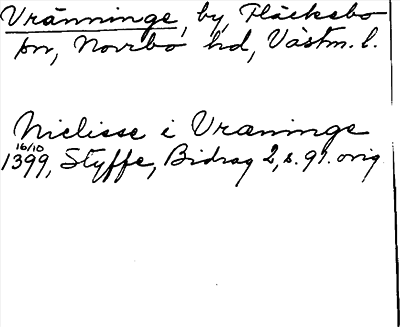 Vränninge, by, Fläckebo
sn, Norrbo hd, Västm. l.
Nielisse i Vræninge
16/10 1399, Styffe, Bidrag 2, s. 91. orig